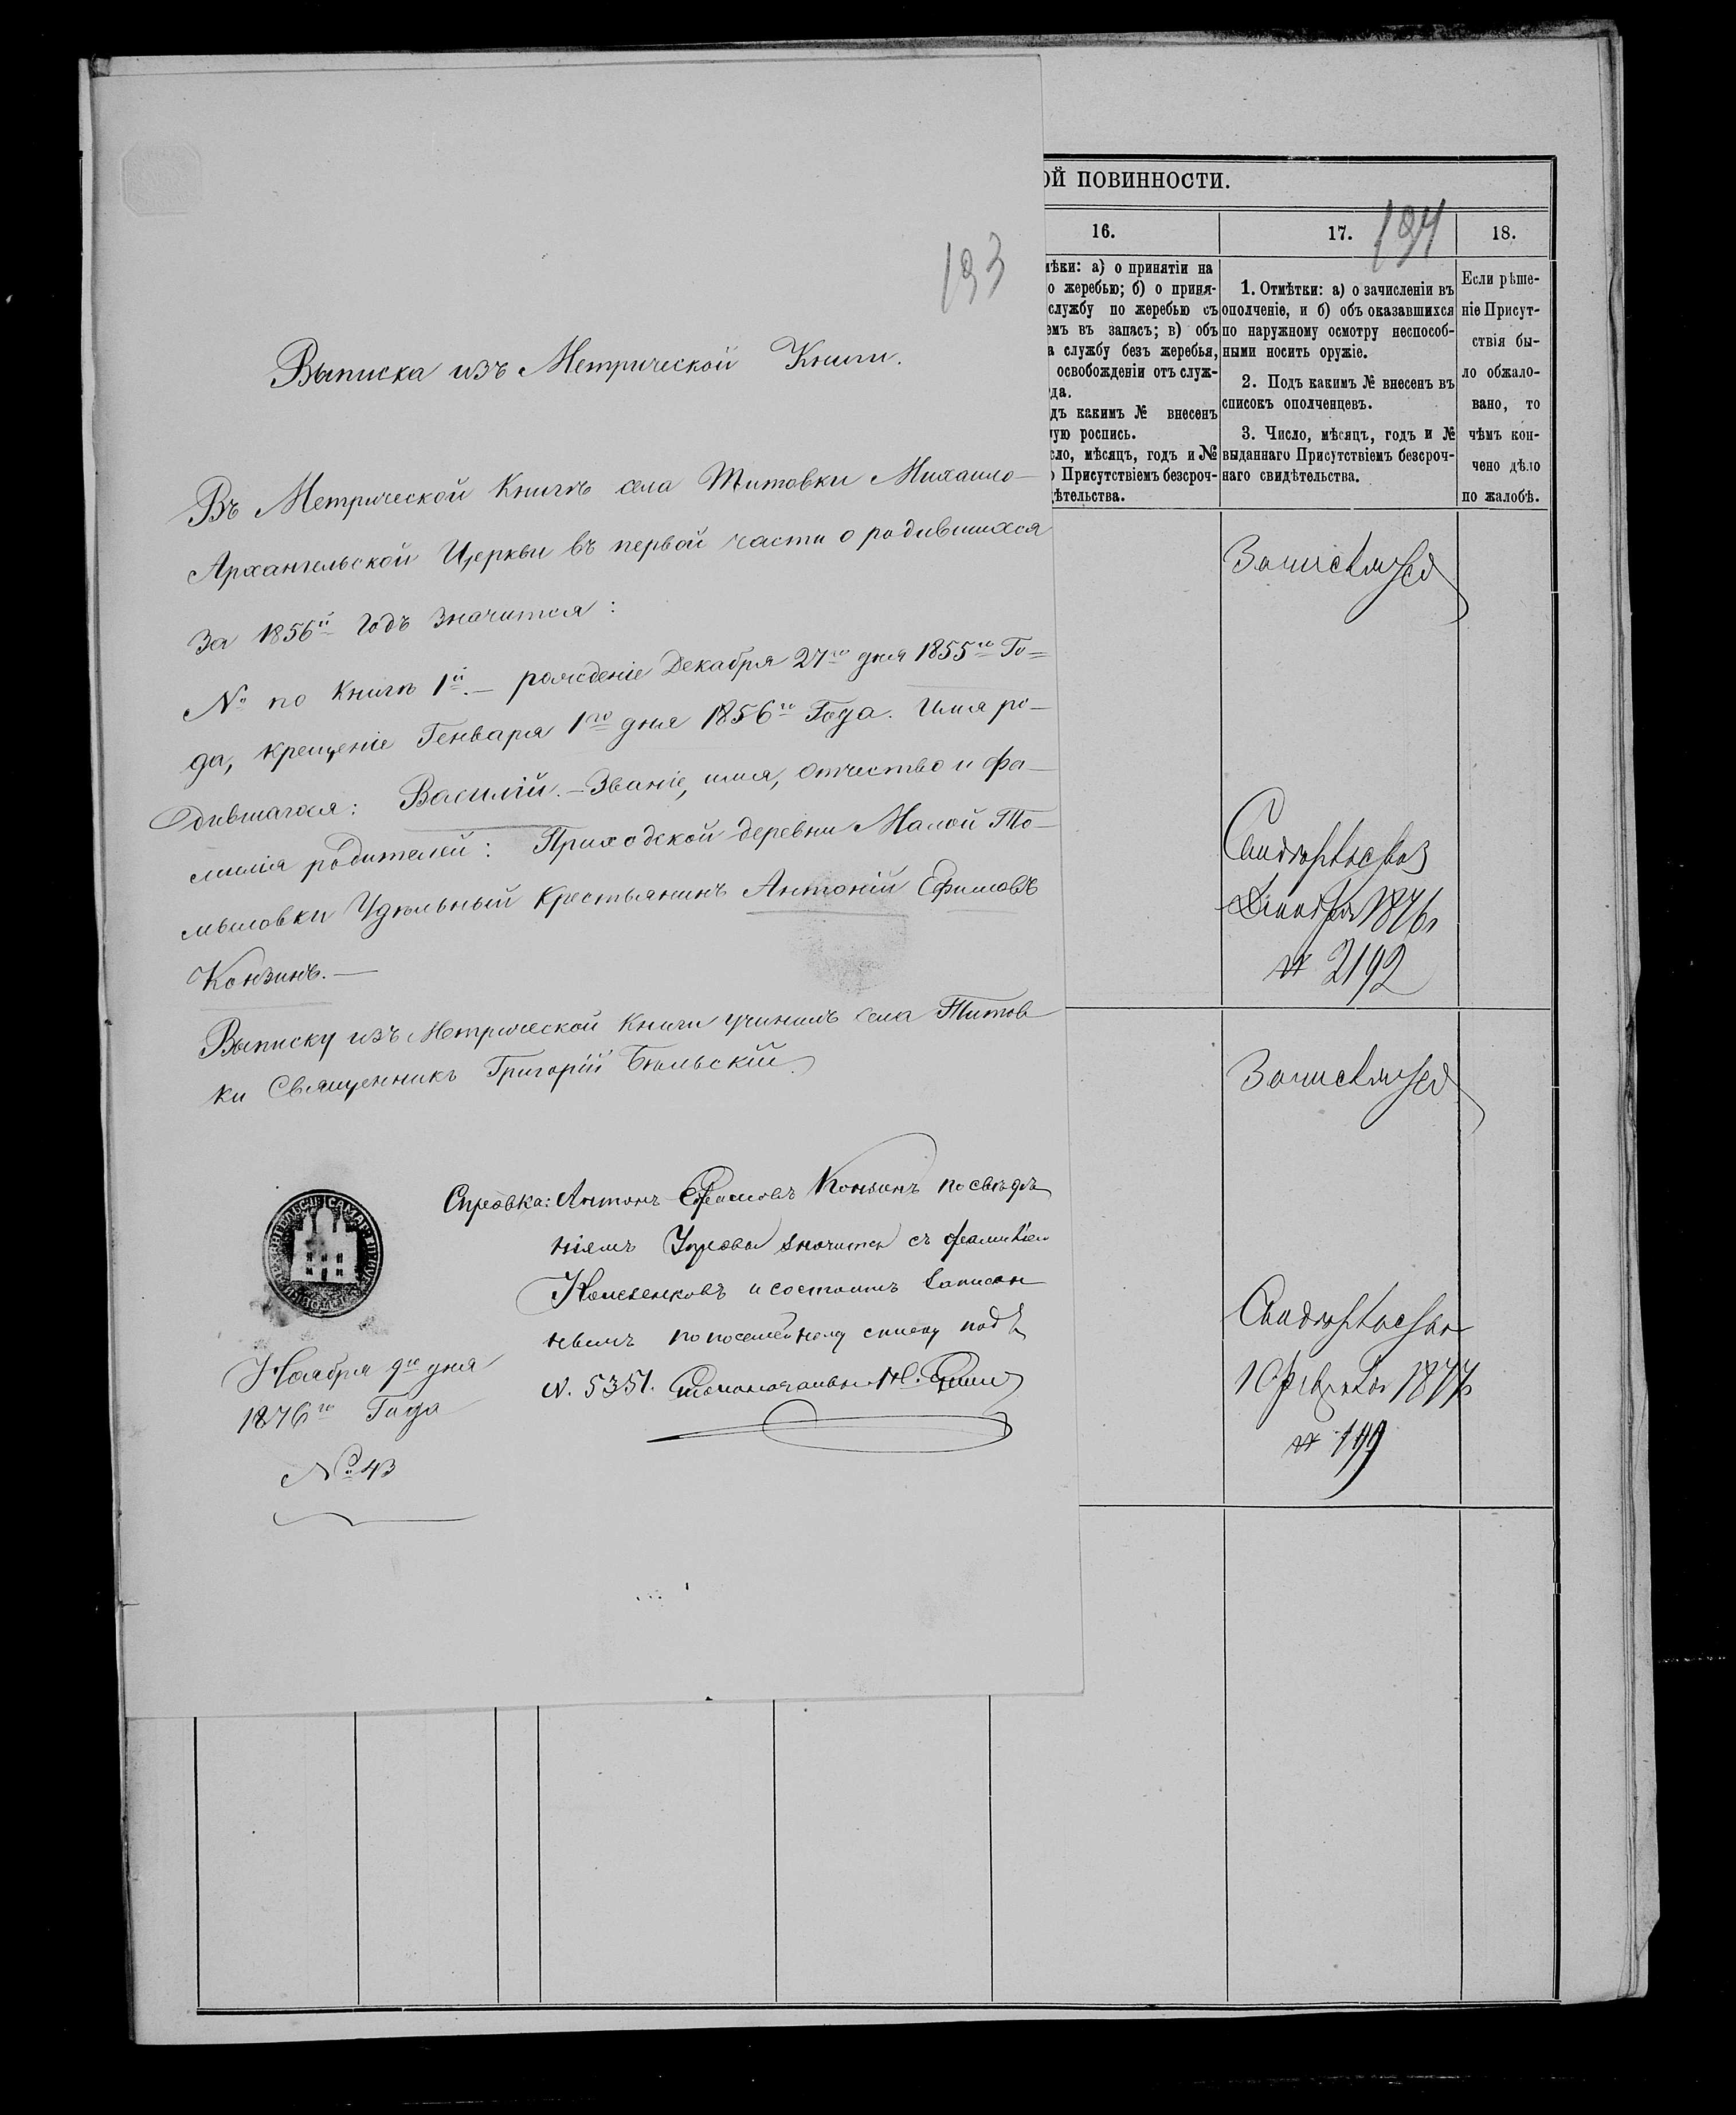 193
Выписка изъ Метрической Книги.
Въ Метрической Книгѣ села Титовки Михаило-
Архангельской Церкви въ первой части о родившихся
За 1856й Годъ значится:
№ по Книгѣ 1й. — рожденіе Декабря 27го дня 1855го Го=
да, крещеніе Генваря 1го дня 1856го Года. Имя ро-
дившагося: Василій. — Званіе, имя, отчество и фа-
милія родителей: Приходской деревни Малой То-
мыловки Удѣльный Крестьянинъ Антоній Ефимовъ
Конзинъ. —
Выписку изъ Метрической Книги учинилъ села Титов-
ки Священникъ Григорій Бѣльскій.
Справка: Антонъ Ефимовъ Конзинъ по свѣдѣ
ніямъ Управы значится съ фамиліей
и состоитъ записан
нымъ по посемейному списку под
N. 5351.
Ноября 9го дня
1876го Года
№ 43
ОЙ ПОВИННОСТИ.
194
16.
17.
18.
ѣки: а) о принятіи на
о жеребью; б) о приня-
службу по жеребью съ
емъ въ запасъ; в) объ
а службу безъ жеребья,
освобожденіи отъ служ-
да.
дъ какимъ № внесенъ
ую роспись.
сло, мѣсяцъ, годъ и №
о Присутствіемъ безсроч-
дѣтельства.
1. Отмѣтки: а) о зачисленіи въ
ополченіе, и б) объ оказавшихся
по наружному осмотру неспособ-
ными носить оружіе.
2. Подъ какимъ № внесенъ въ
списокъ ополченцевъ.
3. Число, мѣсяцъ, годъ и №
выданнаго Присутствіемъ безсроч-
наго свидѣтельства.
Если рѣше-
ніе Присут-
ствія бы-
ло обжало-
вано, то
чѣмъ кон-
чено дѣло
по жалобѣ.
Свидѣтельство
1876
№ 2192
Свидѣтельство
10 Февраля 1877
№ 199